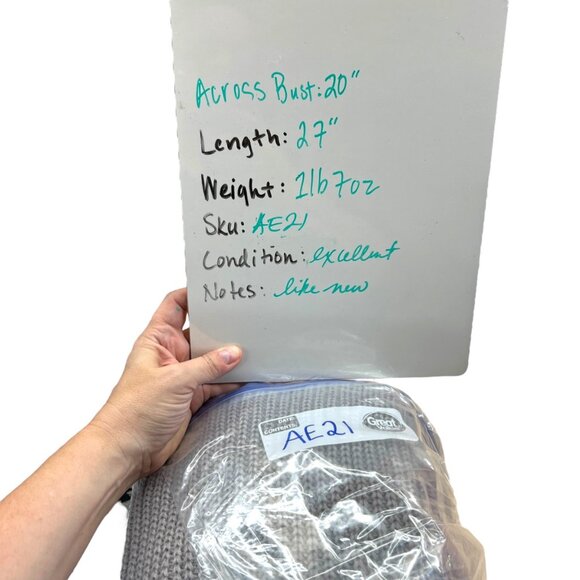 Across Bust: 20"
Length: 27"
Weight: 1lb 7oz
Sku: AE21
Condition: excellent
Notes: like new
DATE:
CONTENTS:
Great
AE21